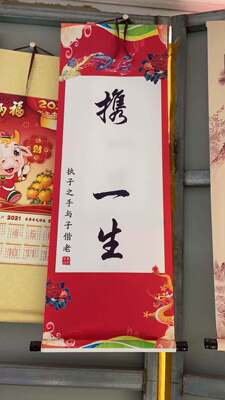 携一生
执子之手与子偕老
福
2021